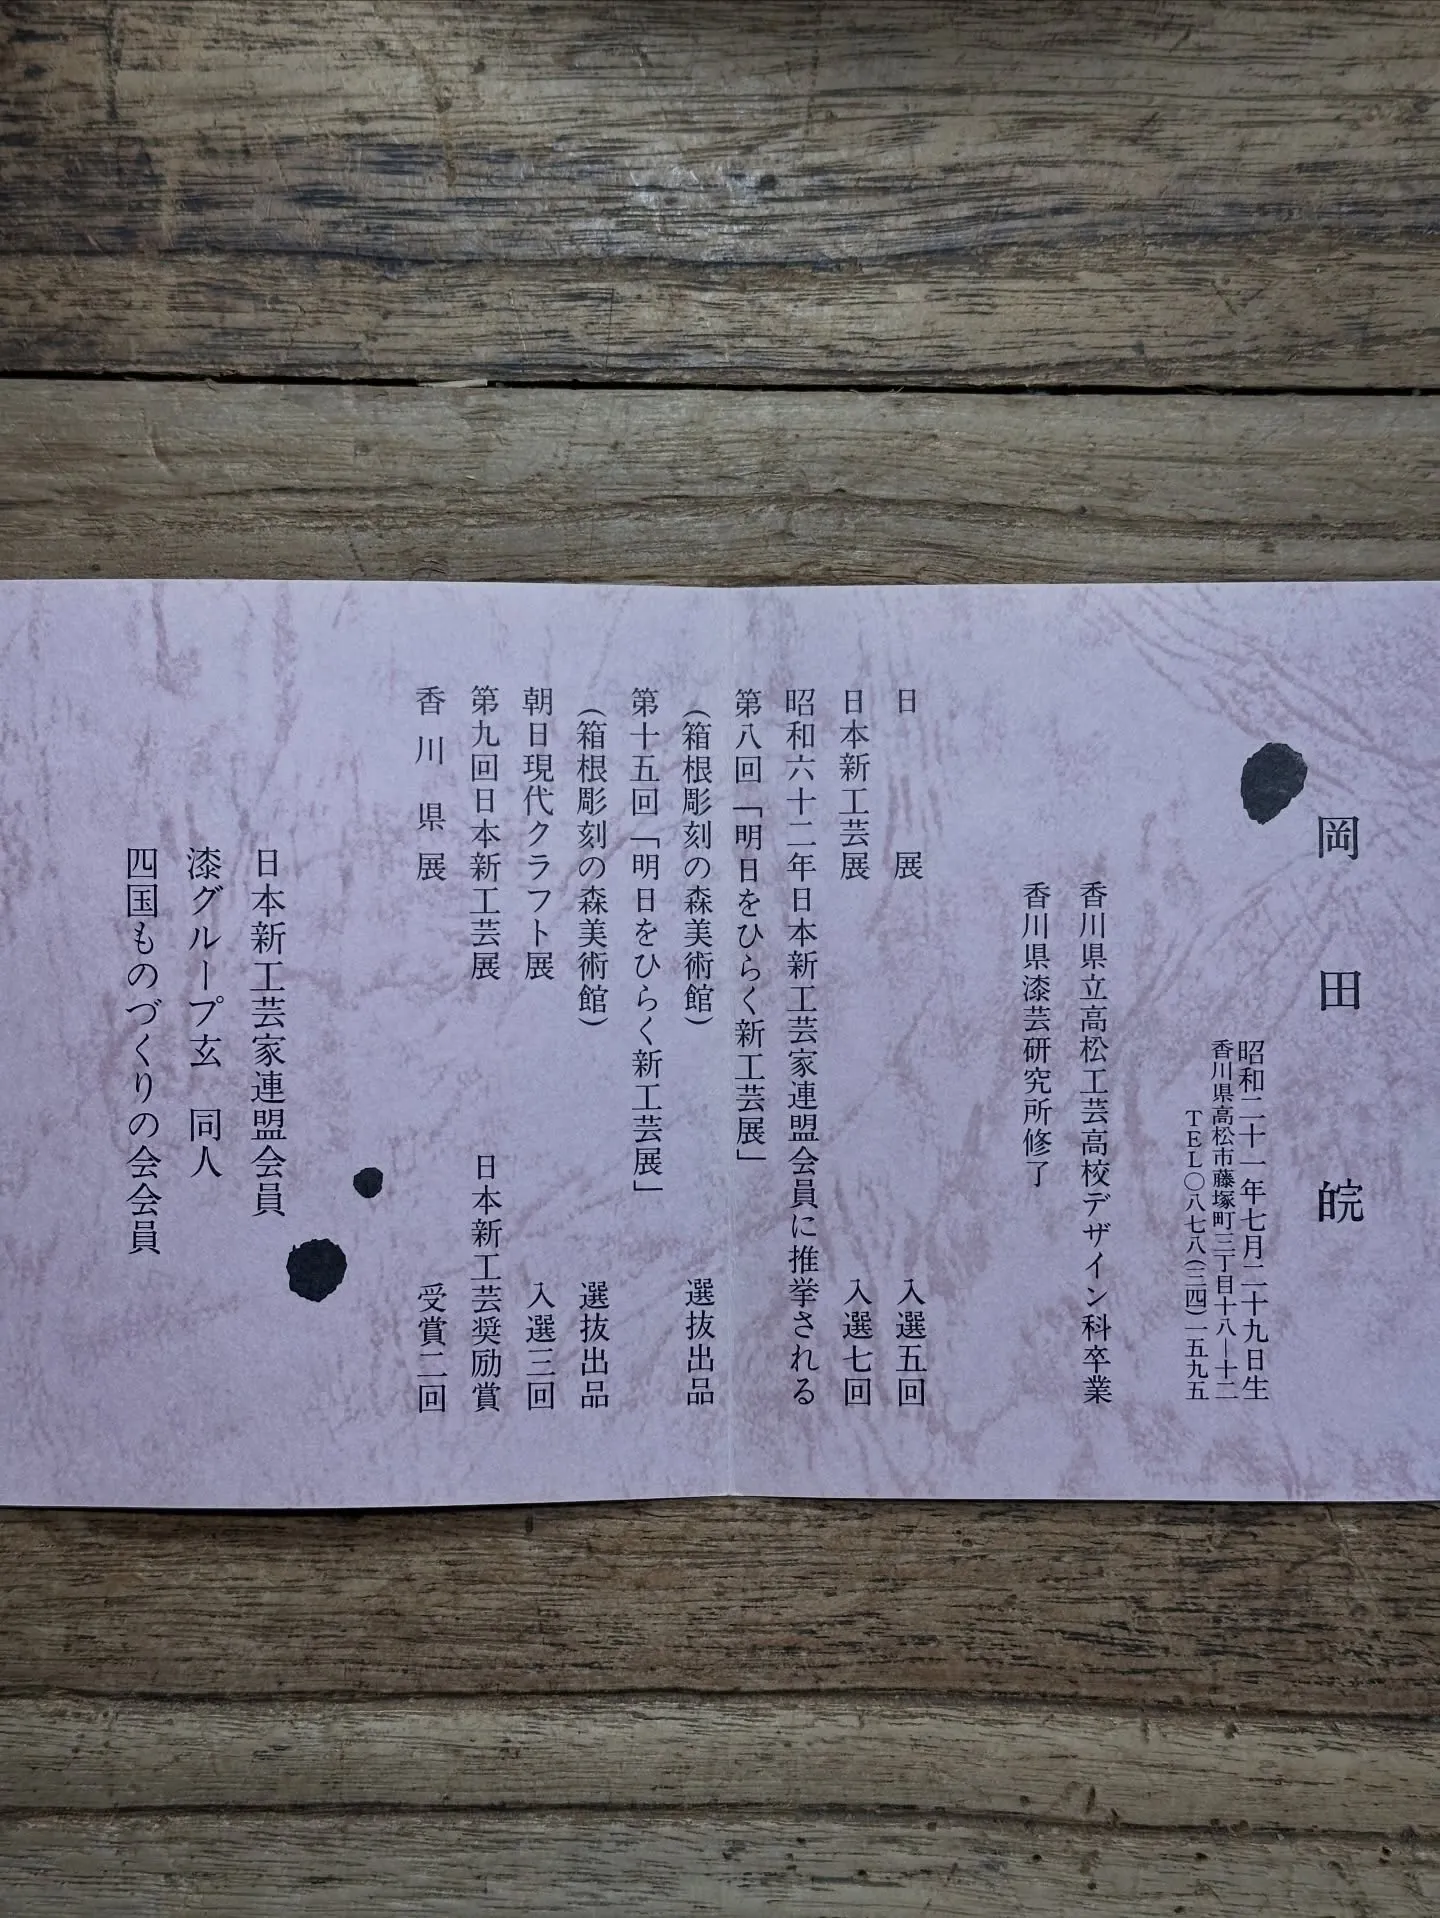 岡田 皖
昭和二十一年七月二十九日生
香川県高松市藤塚町三丁目十八―十二
TEL〇八七八(三四)一五九五
香川県立高松工芸高校デザイン科卒業
香川県漆芸研究所修了
日展 入選五回
日本新工芸展 入選七回
昭和六十二年日本新工芸家連盟会員に推挙される
第八回「明日をひらく新工芸展」
(箱根彫刻の森美術館) 選抜出品
第十五回「明日をひらく新工芸展」
(箱根彫刻の森美術館) 選抜出品
朝日現代クラフト展 入選三回
第九回日本新工芸展 日本新工芸奨励賞
香川県展 受賞二回
日本新工芸家連盟会員
漆グループ玄 同人
四国ものづくりの会会員